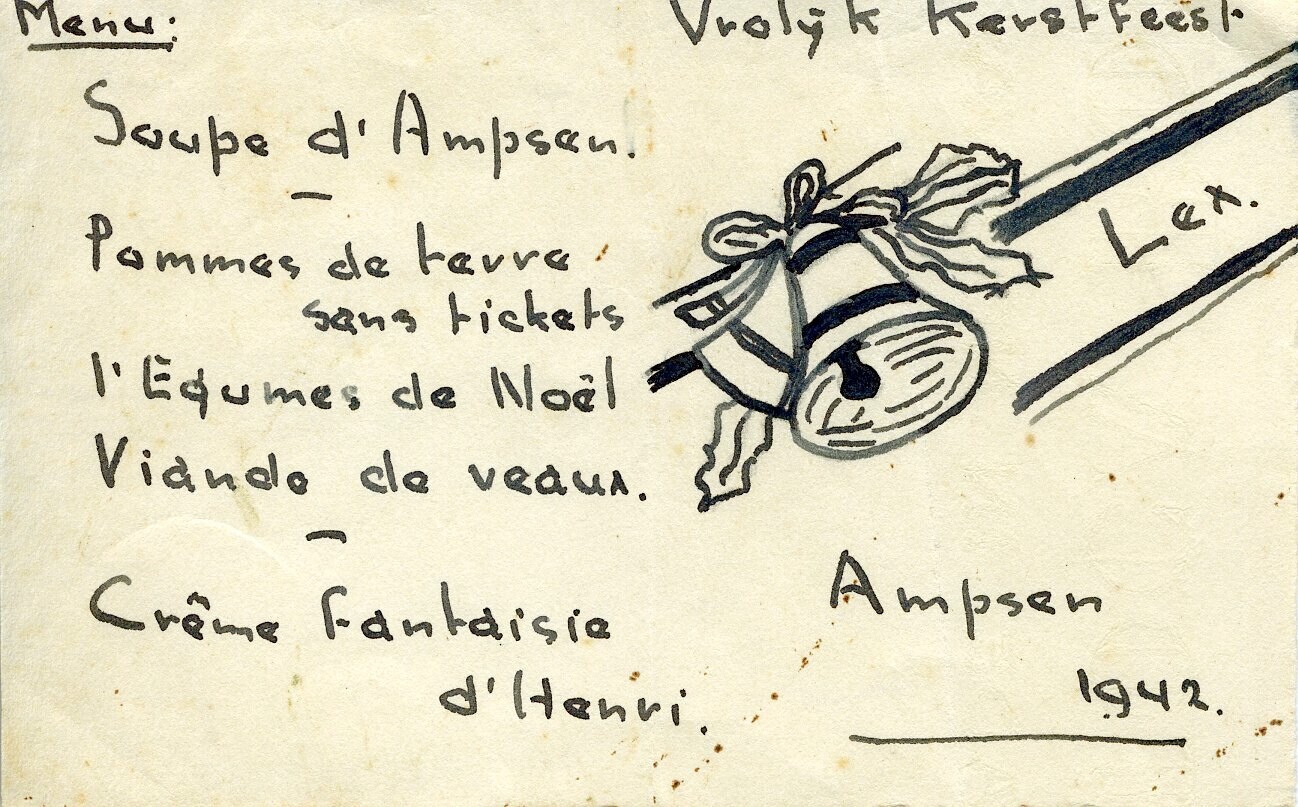 Menu:
Soupe d'Ampsen.
–
Pommes de terre
sans tickets
l'Equmes de Noël
Viande de veaux.
–
Crême Fantaisie
d'Henri.
Vrolijk Kerstfeest.
Lex.
Ampsen
1942.